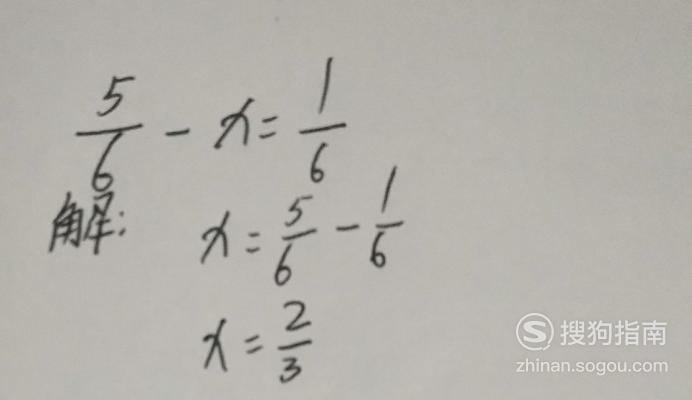 5/6 - x = 1/6
解: x = 5/6 - 1/6
x = 2/3
S 搜狗指南
zhinan.sogou.com